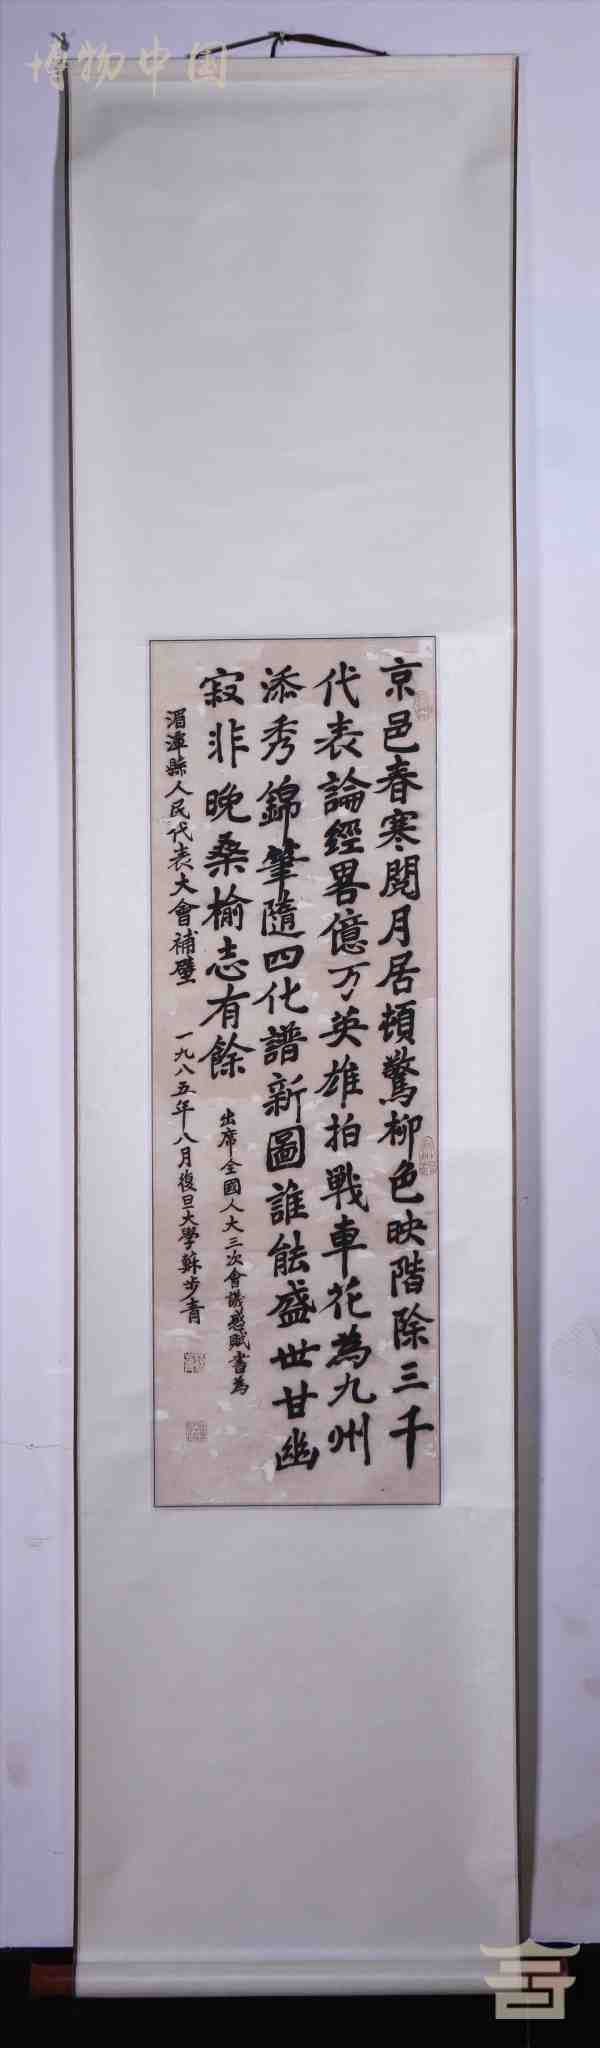 博物中国
京邑春寒閱月居頓驚柳色映階除三千
代表論經畧億万英雄拍戰車花為九州
添秀錦筆隨四化譜新圖誰能盛世甘幽
寂非晚桑榆志有餘
出席全國人大三次會議感賦書為
湄潭縣人民代表大會補壁 一九八五年八月復旦大學蘇步青